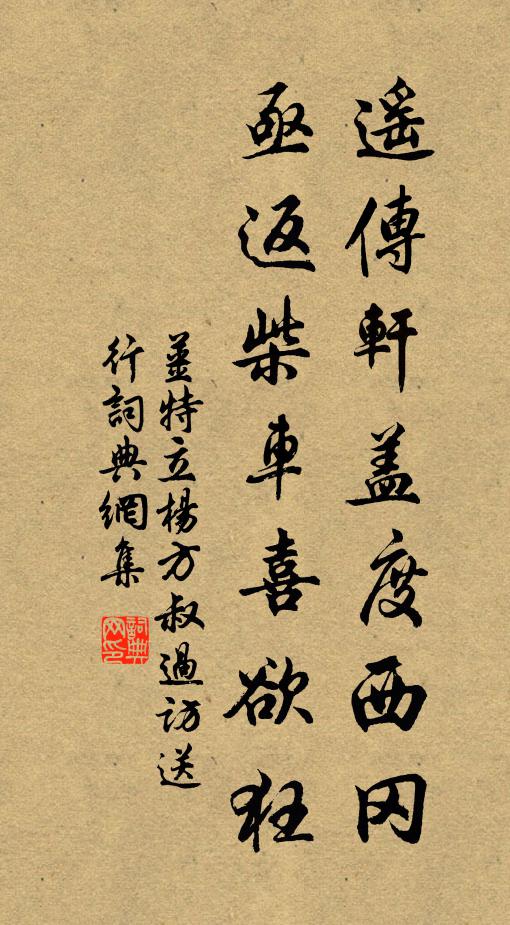 遥傳軒蓋度西冈
亟返柴車喜欲狂
姜特立楊方叔過訪送
行詞典網集
詞典网印